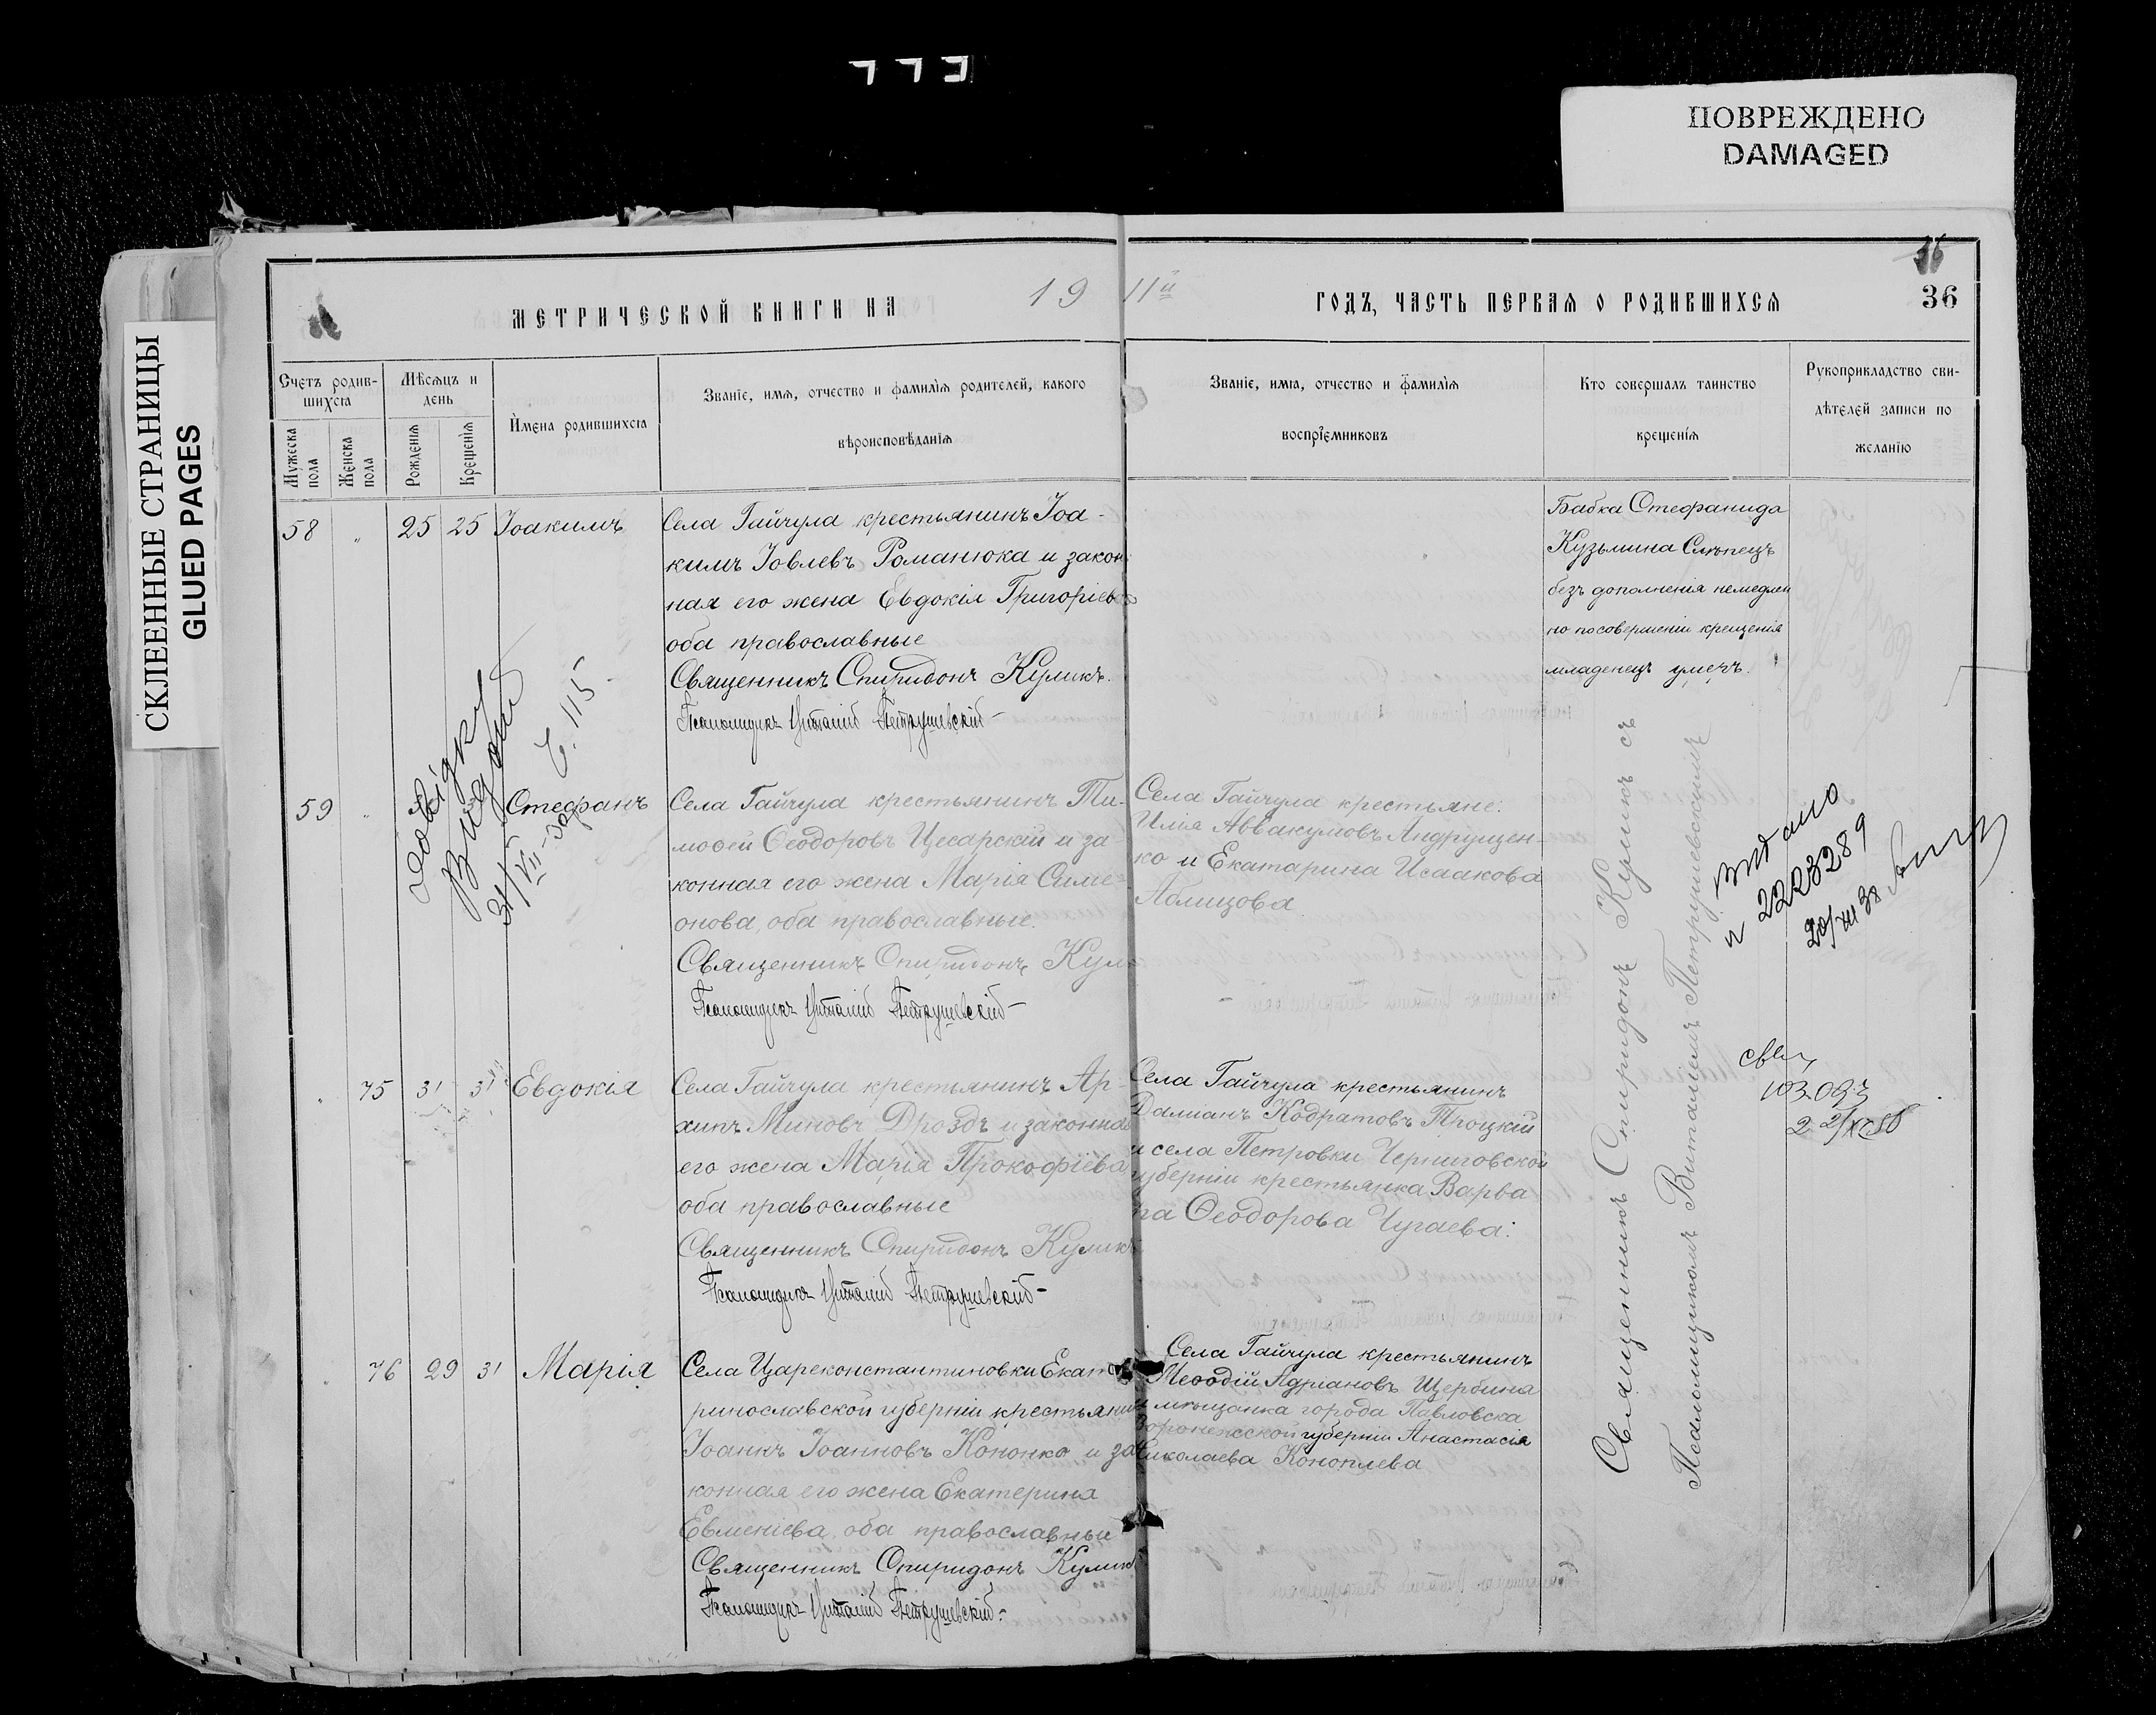 ПОВРЕЖДЕНО
DAMAGED
СКЛЕЕННЫЕ СТРАНИЦЫ
GLUED PAGES
36
МЕТРИЧЕСКОЙ КНИГИ НА 1911й ГОДЪ, ЧАСТЬ ПЕРВАЯ О РОДИВШИХСЯ
36
Счетъ родив-
шихся
Мѣсяцъ и
день
Мужеска
пола
Женска
пола
Рожденія
Крещенія
Имена родившихся
Званіе, имя, отчество и фамилія родителей, какого
вѣроисповѣданія
Званіе, имя, отчество и фамилія
воспріемниковъ
Кто совершалъ таинство
крещенія
Рукоприкладство сви-
дѣтелей записи по
желанію
58 " 25 25 Іоакимъ
Села Гайчула крестьянинъ Іоа-
кимъ Іовлевъ Романюка и закон
ная его жена Евдокія Григоріева
оба православные
Священникъ Спиридонъ Куликъ.
Псаломщикъ Виталій Петрушевскій
Бабка Стефанида
Кузьмина Слѣпецъ
безъ дополненія немедлен
но по совершеніи крещенія
младенецъ умеръ.
довідку
Видано
31/VII-39
С. 115
59 " Стефанъ
Села Гайчула крестьянинъ Ти-
моѳей Ѳеодоровъ Цесарскій и за-
конная его жена Марія Симе-
онова, оба православные.
Священникъ Спиридонъ Кулик
Псаломщикъ Виталій Петрушевскій
Села Гайчула крестьяне:
Илія Аввакумовъ Андрущен-
ко и Екатарина Исаакова
Видано
2223289
" 75 31 31 Евдокія
Села Гайчула крестьянинъ Ар-
хипъ Миновъ Дроздъ и законная
его жена Марія Прокофіева
оба православные
Священникъ Спиридонъ Куликъ
Псаломщикъ Виталій Петрушевскій
Села Гайчула крестьянинъ
Даміанъ Кодратовъ Троцкій
и села Петровки Черниговской
губерніи крестьянка Варва
ра Ѳеодорова Чугаева:
" 76 29 31 Марія
Села Цареконстантиновки Екате
ринославской губерніи крестьянин
Іоаннъ Іоанновъ Кононко и за
конная его жена Екатерина
Евменіева, оба православные
Священникъ Спиридонъ Куликъ
Псаломщикъ Виталій Петрушевскій
Села Гайчула крестьянинъ
Меѳодій Адріановъ Щербина
и мѣщанка города Павловска
Воронежской губерніи Анастасія
Николаева Коноплева
Священникъ Спиридонъ Куликъ съ
Псаломщикомъ Виталіемъ Петрушевскимъ